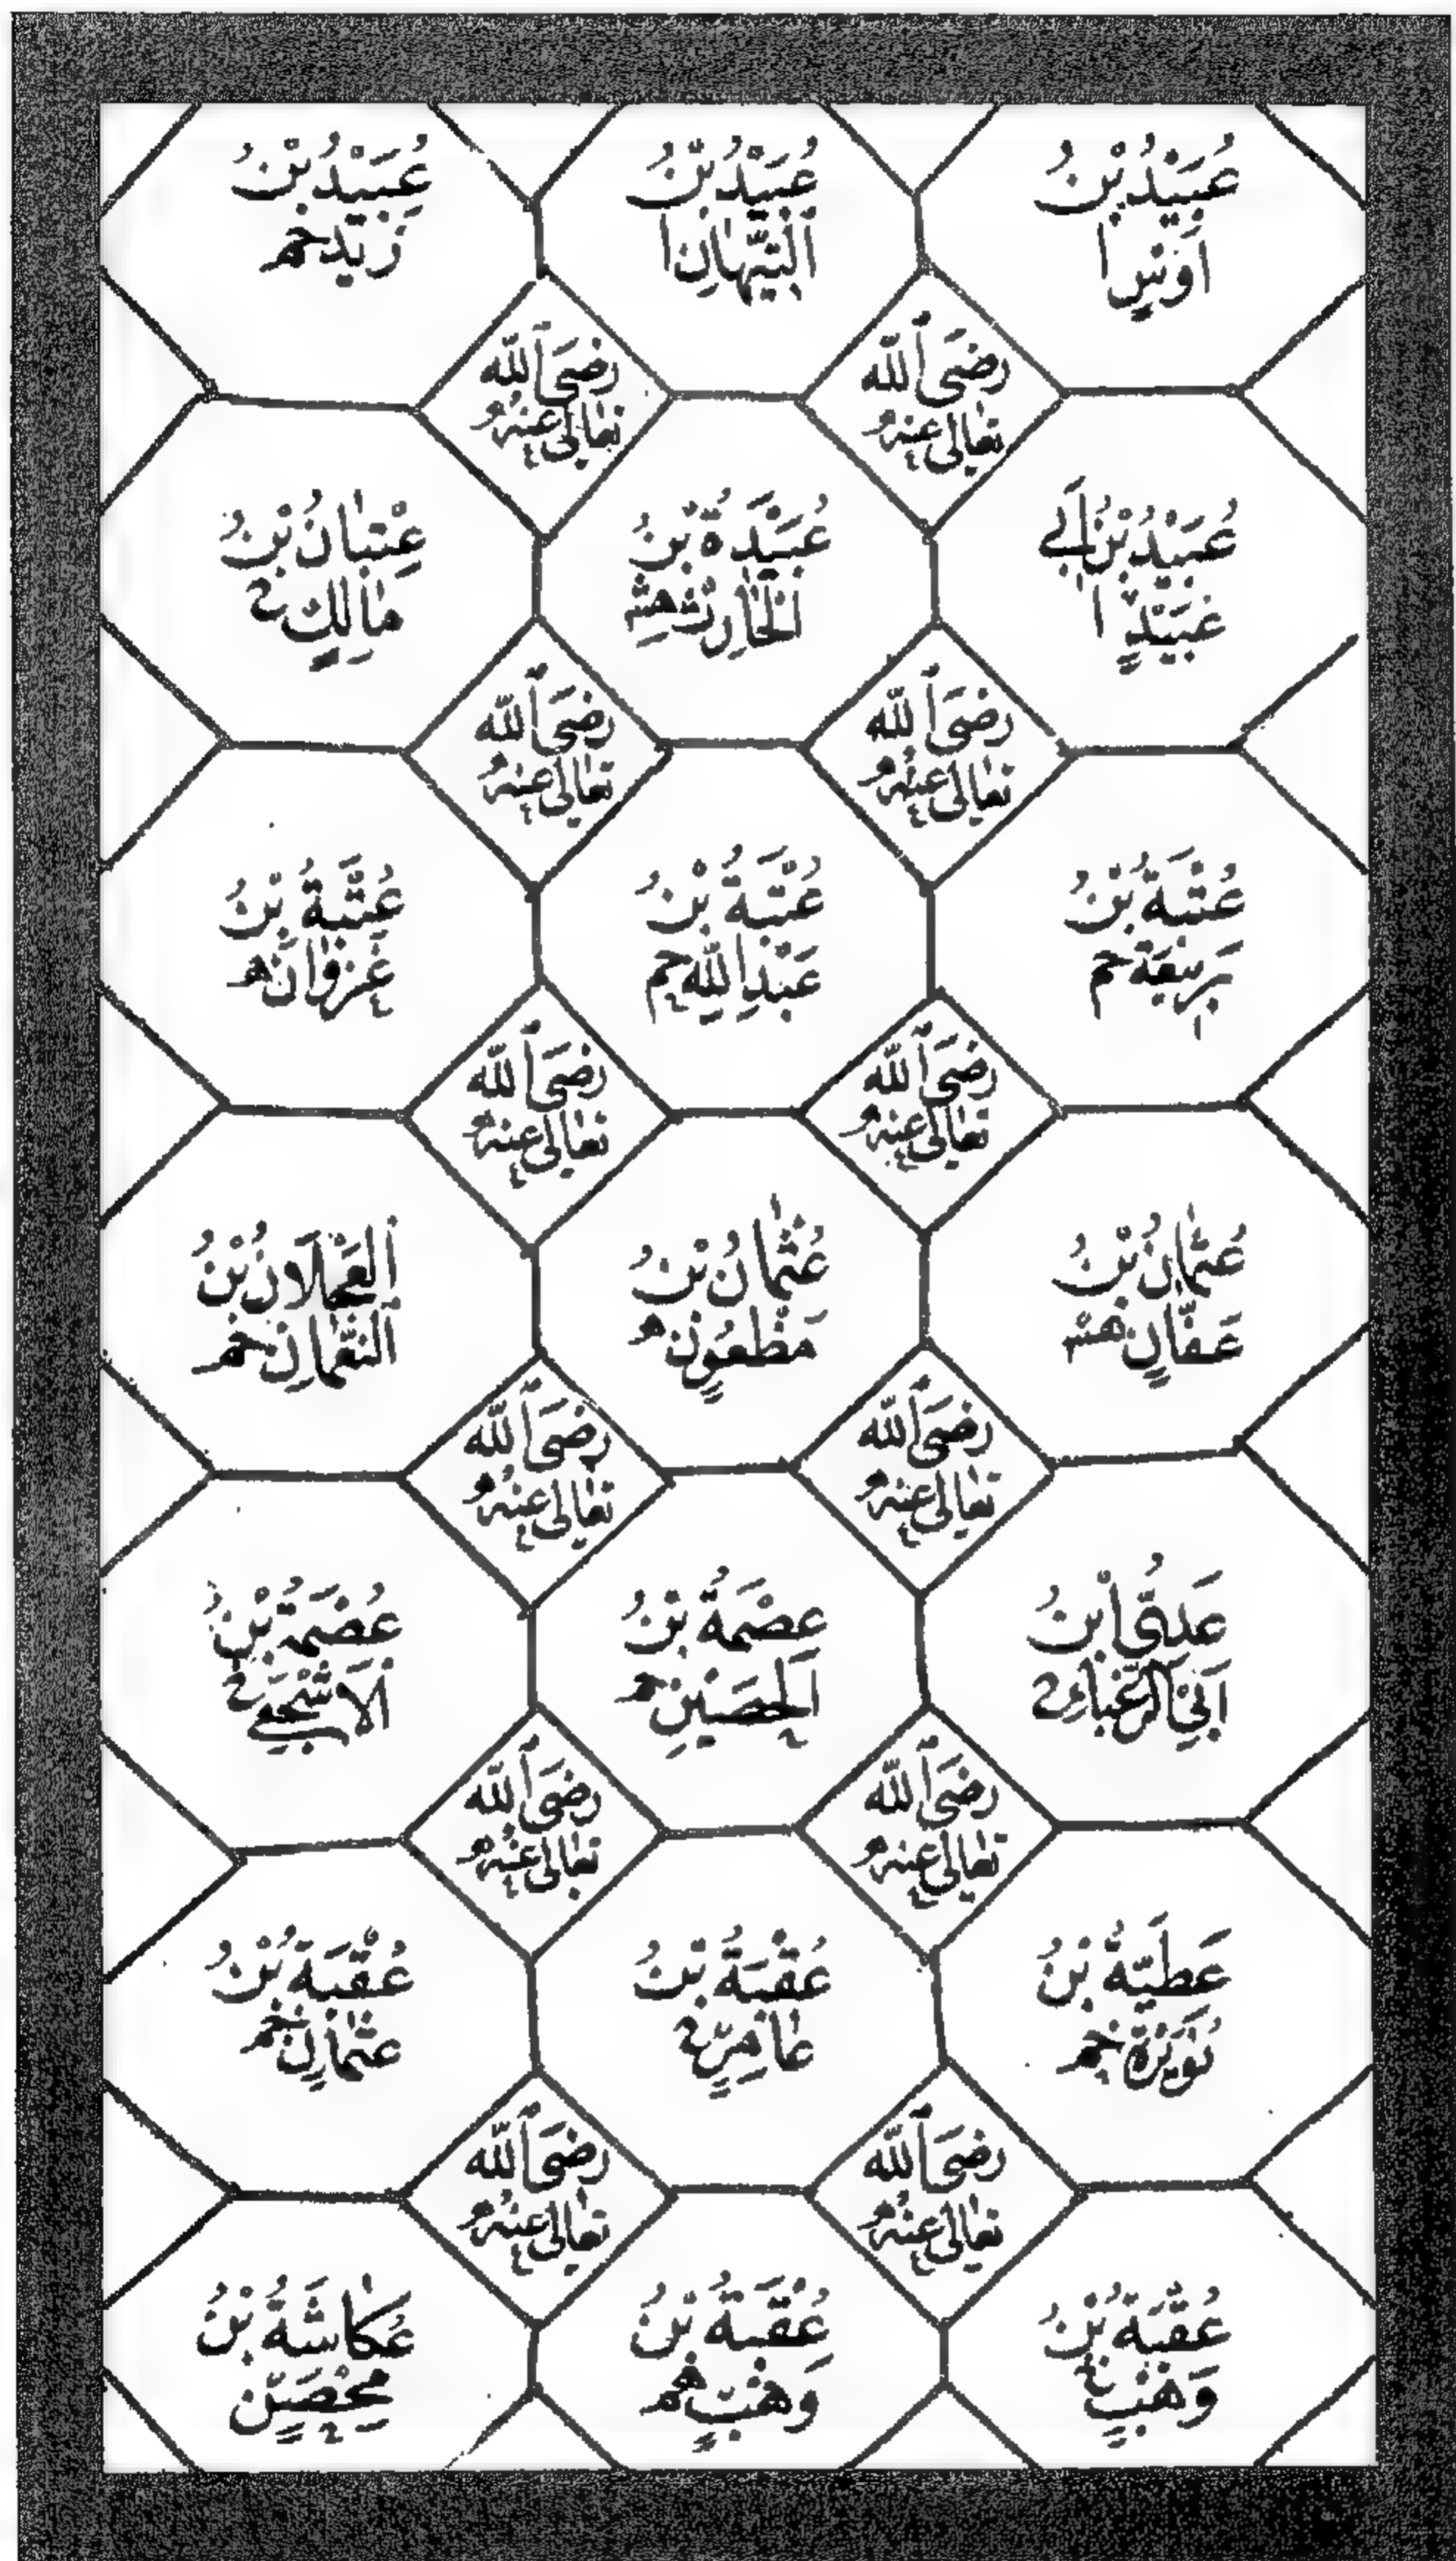 عُبَيْدُ بْنُ
اَوْسٍ ا
عُبَيْدُ بْنُ
اَلتَّيِّهَانِ ا
عُبَيْدُ بْنُ
زَيْدٍ خم
رَضِىَ اللّٰه
تَعَالىٰ عَنْهُ و
رَضِىَ اللّٰه
تَعَالىٰ عَنْهُ و
عُبَيْدُ بْنُ اَبِے
عُبَيْدٍ ا
عُبَيْدَةُ بْنُ
الْحَارِثِ هشم
عِتْبَانُ بْنُ
مَالِكٍ خ
رَضِىَ اللّٰه
تَعَالىٰ عَنْهُ و
رَضِىَ اللّٰه
تَعَالىٰ عَنْهُ و
عُتْبَةُ بْنُ
رَبِيْعَةَ حم
عُتْبَةُ بْنُ
عَبْدِ اللّٰهِ حم
عُتْبَةُ بْنُ
غَزْوَانَ مه
رَضِىَ اللّٰه
تَعَالىٰ عَنْهُ و
رَضِىَ اللّٰه
تَعَالىٰ عَنْهُ و
عُثْمَانُ بْنُ
عَفَّانٍ هشم
عُثْمَانُ بْنُ
مَظْعُوْنٍ مه
اَلْعَجْلَانُ بْنُ
اَلنُّعْمَانِ خم
رَضِىَ اللّٰه
تَعَالىٰ عَنْهُ و
رَضِىَ اللّٰه
تَعَالىٰ عَنْهُ و
عَدِىُّ ابْنُ
اَبِىْ الزَّغْبَاءِ خ
عِصْمَةُ بْنُ
الْحُصَيْنِ خم
عُصَيْمَةُ بْنُ
اَلْاَشْجَعِے خ
رَضِىَ اللّٰه
تَعَالىٰ عَنْهُ و
رَضِىَ اللّٰه
تَعَالىٰ عَنْهُ و
عَطِيَّةُ بْنُ
نُوَيْرَةَ خم
عُقْبَةُ بْنُ
عَامِرٍ خ
عُقْبَةُ بْنُ
عُثْمَانَ خم
رَضِىَ اللّٰه
تَعَالىٰ عَنْهُ و
رَضِىَ اللّٰه
تَعَالىٰ عَنْهُ و
عُقْبَةُ بْنُ
وَهْبٍ خ
عُقْبَةُ بْنُ
وَهْبٍ مه
عُكَاشَةُ بْنُ
مِحْصَنٍ